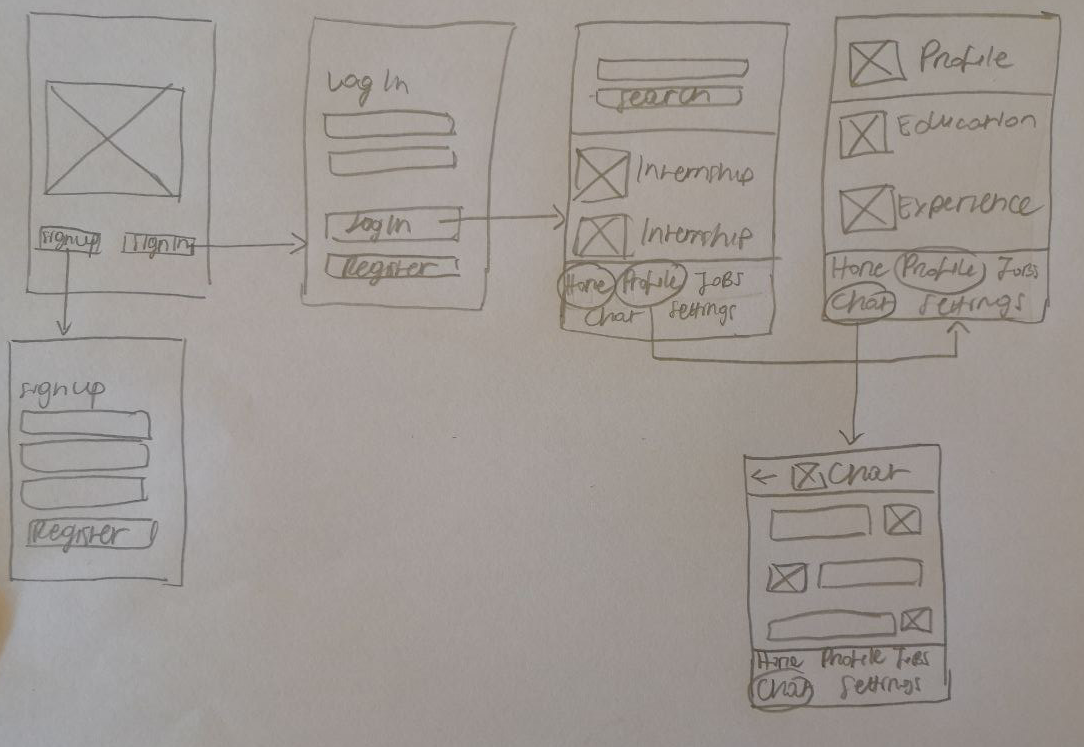 signup signin
Log In
Log In
Register
search
Internship
Internship
Home Profile JOBS
Chat settings
Profile
Education
Experience
Home Profile JOBS
Chat settings
signup
Register
← Chat
Home Profile JOBS
Chat settings